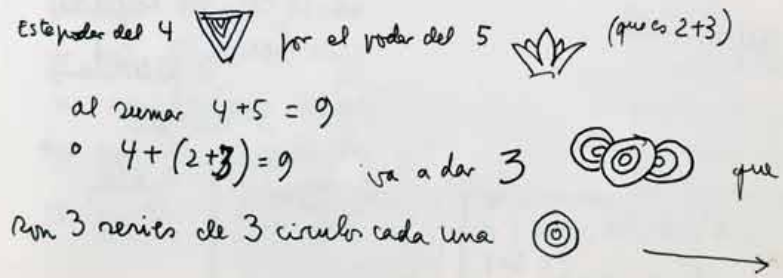 Este poder del 4 por el poder del 5 (que es 2+3)
al sumar 4+5 = 9
o 4+(2+3)=9 va a dar 3 que
son 3 series de 3 circulos cada una